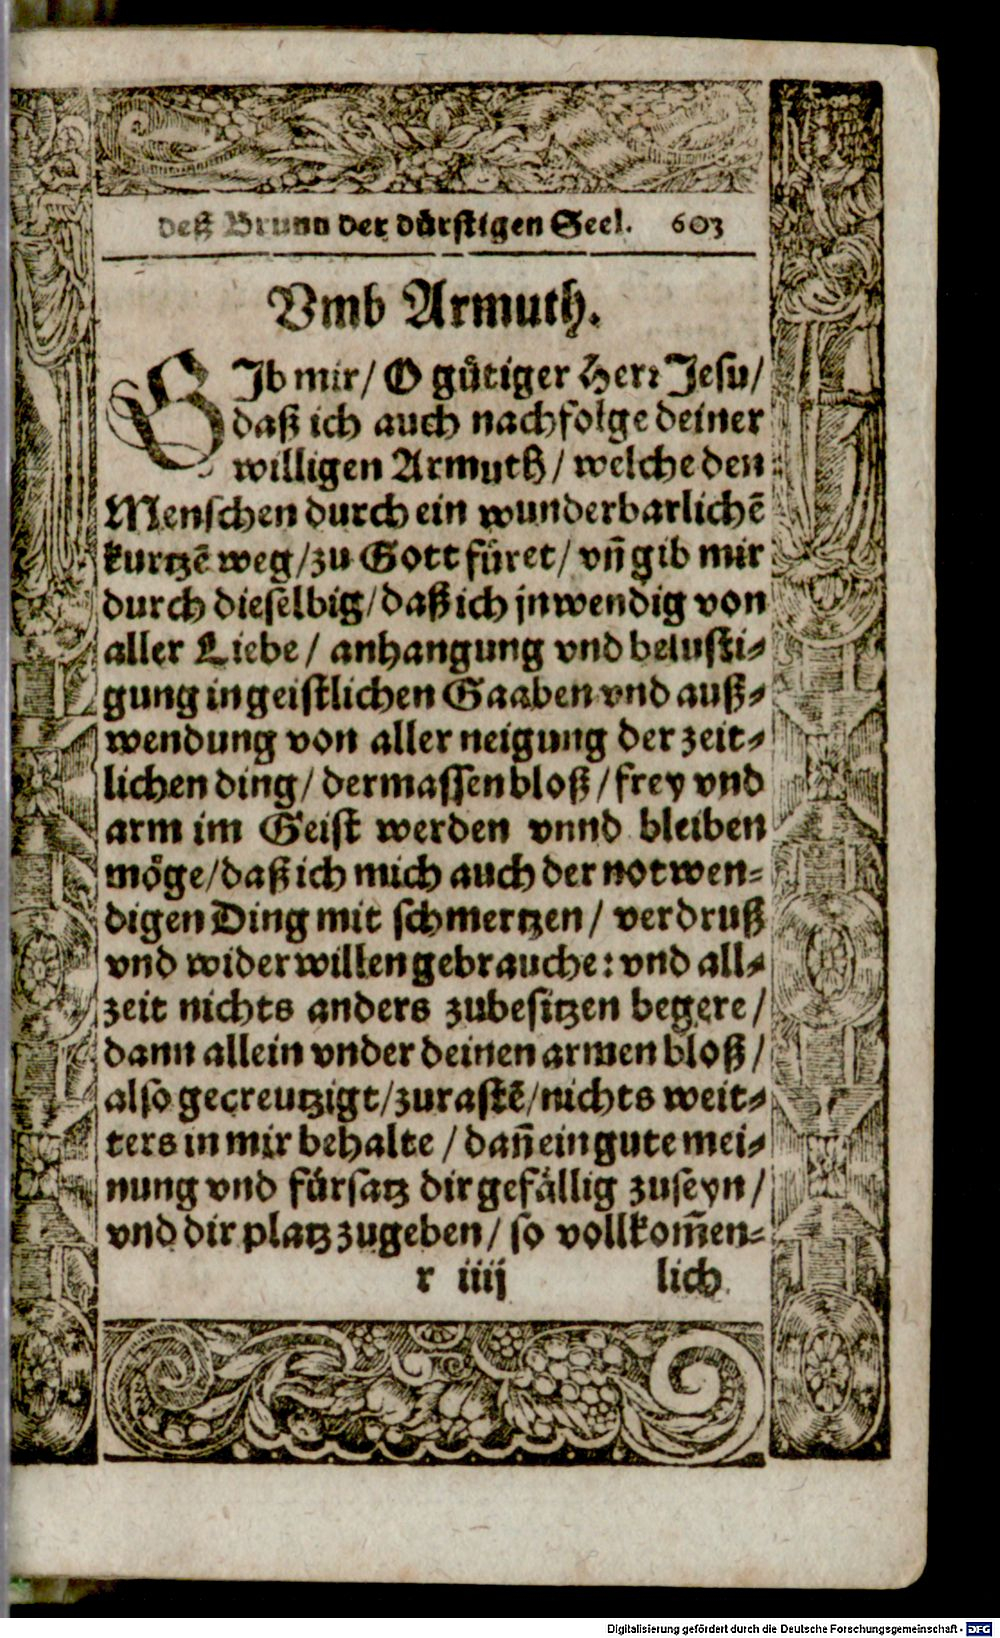 deß Brunn der dürstigen Seel. 603
Vmb Armuth.
GIb mir/ O gütiger Herr Jesu/
daß ich auch nachfolge deiner
willigen Armuth/ welche den
Menschen durch ein wunderbarlichẽ
kurtzẽ weg/ zu Gott füret/ vñ gib mir
durch dieselbig/ daß ich jnwendig von
aller Liebe/ anhangung vnd belusti-
gung in geistlichen Gaaben vnd auß-
wendung von aller neigung der zeit-
lichen ding/ dermassen bloß/ frey vnd
arm im Geist werden vnnd bleiben
möge/ daß ich mich auch der notwen-
digen Ding mit schmertzen/ verdruß
vnd widerwillen gebrauche: vnd all-
zeit nichts anders zubesitzen begere/
dann allein vnder deinen armen bloß/
also gecreutzigt/ zurastẽ/ nichts weit-
ters in mir behalte/ dañ ein gute mei-
nung vnd fürsatz dir gefällig zuseyn/
vnd dir platz zugeben/ so vollkom̃en-
r iiij lich
Digitalisierung gefördert durch die Deutsche Forschungsgemeinschaft - DFG